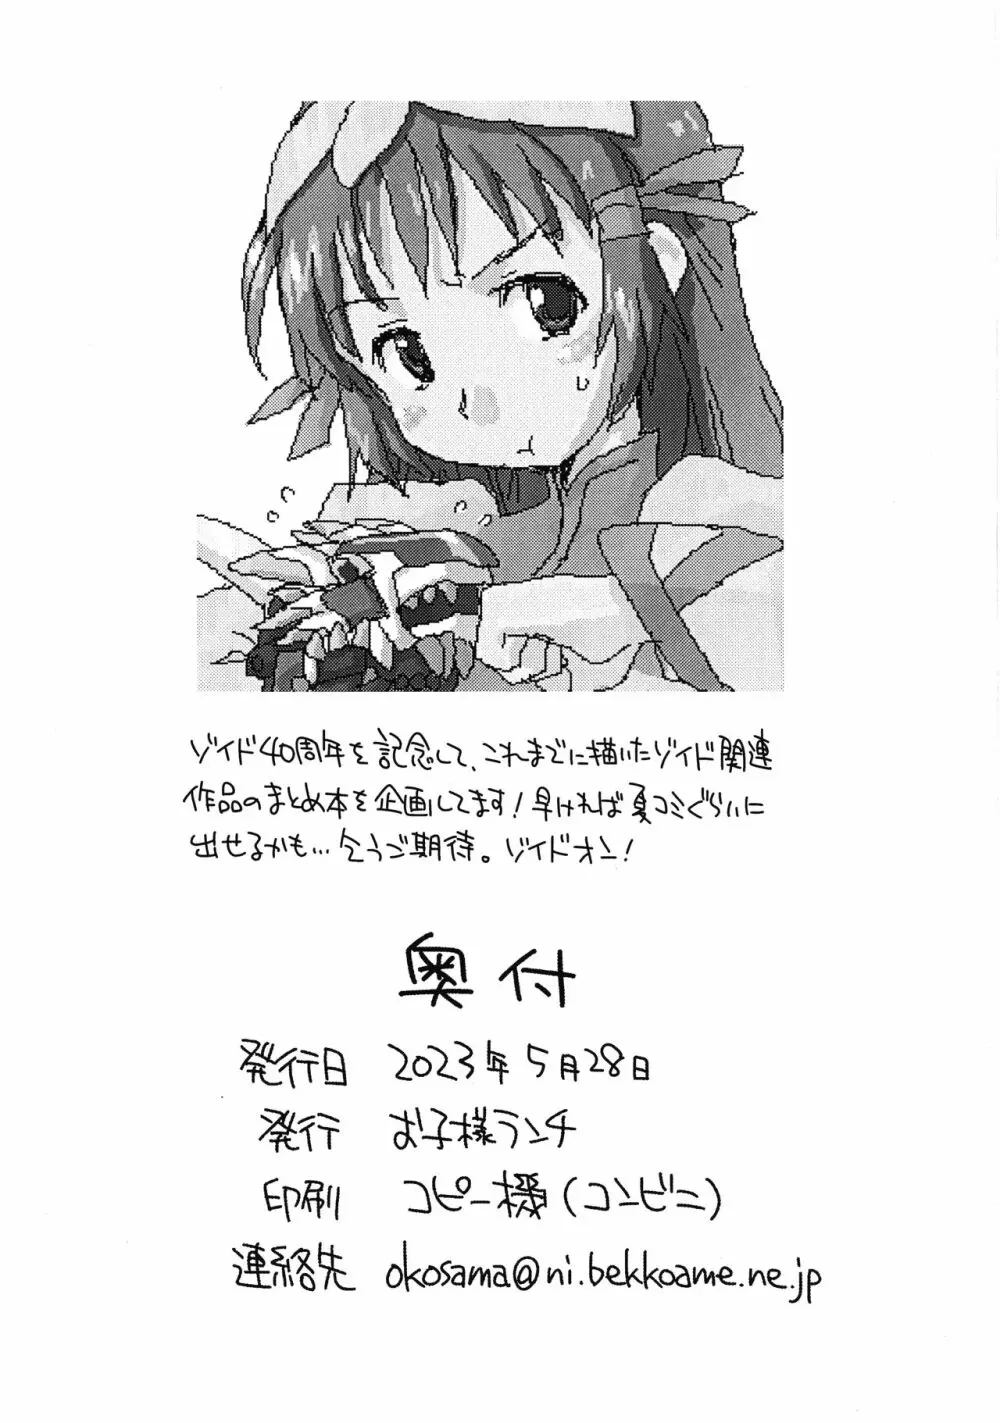 ゾイド40周年を記念して、これまでに描いたゾイド関連
作品のまとめ本を企画してます！早ければ夏コミぐらいに
出せるかも…乞うご期待。ゾイドオン！
奥付
発行日 2023年5月28日
発行 お子様ランチ
印刷 コピー機(コンビニ)
連絡先 okosama@ni.bekkoame.ne.jp